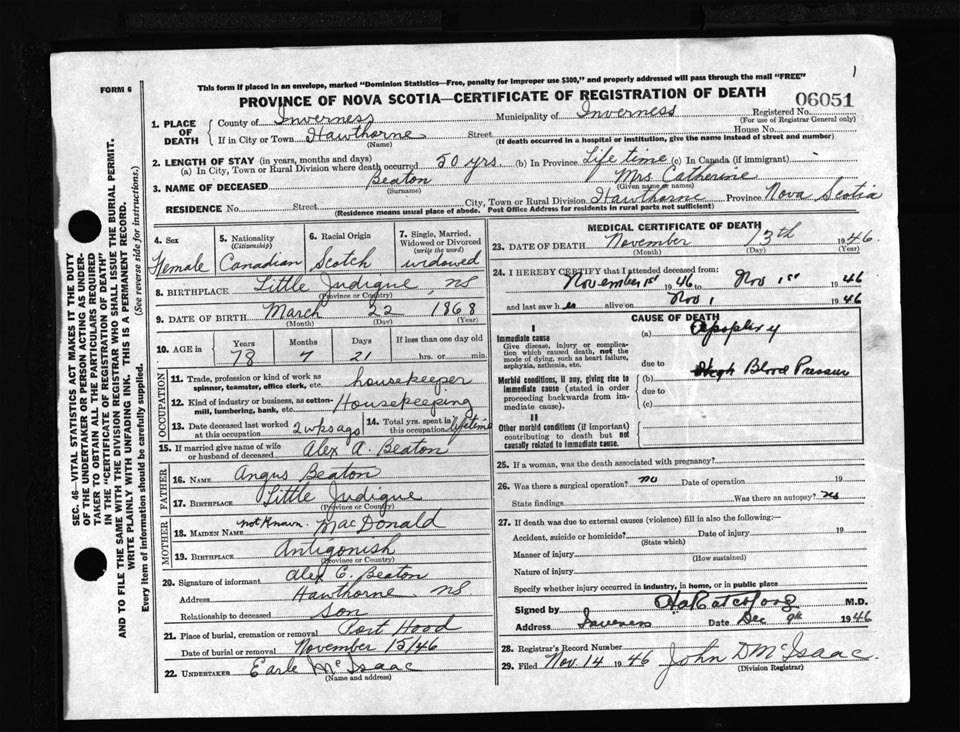 This form if placed in an envelope, marked "Dominion Statistics—Free, penalty for improper use $300," and properly addressed will pass through the mail "FREE"
1
FORM 6
PROVINCE OF NOVA SCOTIA—CERTIFICATE OF REGISTRATION OF DEATH
06051
1. PLACE OF DEATH
County of Inverness Municipality of Inverness Registered No.
(For use of Registrar General only)
If in City or Town Hawthorne Street House No.
(Name) (If death occurred in a hospital or institution, give the name instead of street and number)
2. LENGTH OF STAY (in years, months and days)
(a) In City, Town or Rural Division where death occurred 50 yrs. (b) In Province Life time (c) In Canada (if immigrant) -
3. NAME OF DECEASED Beaton Mrs Catherine
(Surname) (Given name or names)
RESIDENCE No. Street City, Town or Rural Division Hawthorne Province Nova Scotia
(Residence means usual place of abode. Post Office Address for residents in rural parts not sufficient)
4. Sex Female
5. Nationality (Citizenship) Canadian
6. Racial Origin Scotch
7. Single, Married, Widowed or Divorced (write the word) widowed
8. BIRTHPLACE Little Judique, NS
(Province or Country)
9. DATE OF BIRTH March 22 1868
(Month) (Day) (Year)
10. AGE in Years 78 Months 7 Days 21 If less than one day old hrs. or min.
OCCUPATION
11. Trade, profession or kind of work as spinner, teamster, office clerk, etc. housekeeper
12. Kind of industry or business, as cotton-mill, lumbering, bank, etc. Housekeeping
13. Date deceased last worked at this occupation 2 wks ago
14. Total yrs. spent in this occupation lifetime
15. If married give name of wife or husband of deceased Alex A. Beaton
FATHER
16. Name Angus Beaton
17. Birthplace Little Judique
(Province or Country)
MOTHER
18. MAIDEN NAME not known. MacDonald
19. BIRTHPLACE Antigonish
(Province or Country)
20. Signature of informant Alex C. Beaton
Address Hawthorne NS
Relationship to deceased Son
21. Place of burial, cremation or removal Port Hood
Date of burial or removal November 15/46
22. UNDERTAKER Earle McIsaac
(Name and address)
MEDICAL CERTIFICATE OF DEATH
23. DATE OF DEATH November 13th 1946.
(Month) (Day) (Year)
24. I HEREBY CERTIFY that I attended deceased from:
November 1st 1946 to Nov 1st 1946
and last saw her alive on Nov 1 1946
CAUSE OF DEATH
I
Immediate cause
Give disease, injury or complication which caused death, not the mode of dying, such as heart failure, asphyxia, asthenia, etc.
(a) Apoplexy
due to
Morbid conditions, if any, giving rise to immediate cause (stated in order proceeding backwards from immediate cause).
(b) High Blood Pressure
due to
(c)
II
Other morbid conditions (if important) contributing to death but not causally related to immediate cause.
25. If a woman, was the death associated with pregnancy?
26. Was there a surgical operation? no Date of operation 19
State findings Was there an autopsy?
27. If death was due to external causes (violence) fill in also the following:—
Accident, suicide or homicide? Date of injury 19
(State which)
Manner of injury
(How sustained)
Nature of injury
Specify whether injury occurred in industry, in home, or in public place
Signed by M.D.
Address Inverness Date Dec 1946
28. Registrar's Record Number
29. Filed Nov. 14 1946 John D McIsaac.
(Division Registrar)
SEC. 46—VITAL STATISTICS ACT MAKES IT THE DUTY
OF THE UNDERTAKER OR PERSON ACTING AS UNDER-
TAKER TO OBTAIN ALL THE PARTICULARS REQUIRED
IN THE "CERTIFICATE OF REGISTRATION OF DEATH"
AND TO FILE THE SAME WITH THE DIVISION REGISTRAR WHO SHALL ISSUE THE BURIAL PERMIT.
WRITE PLAINLY WITH UNFADING INK. THIS IS A PERMANENT RECORD.
Every item of information should be carefully supplied. (See reverse side for instructions.)